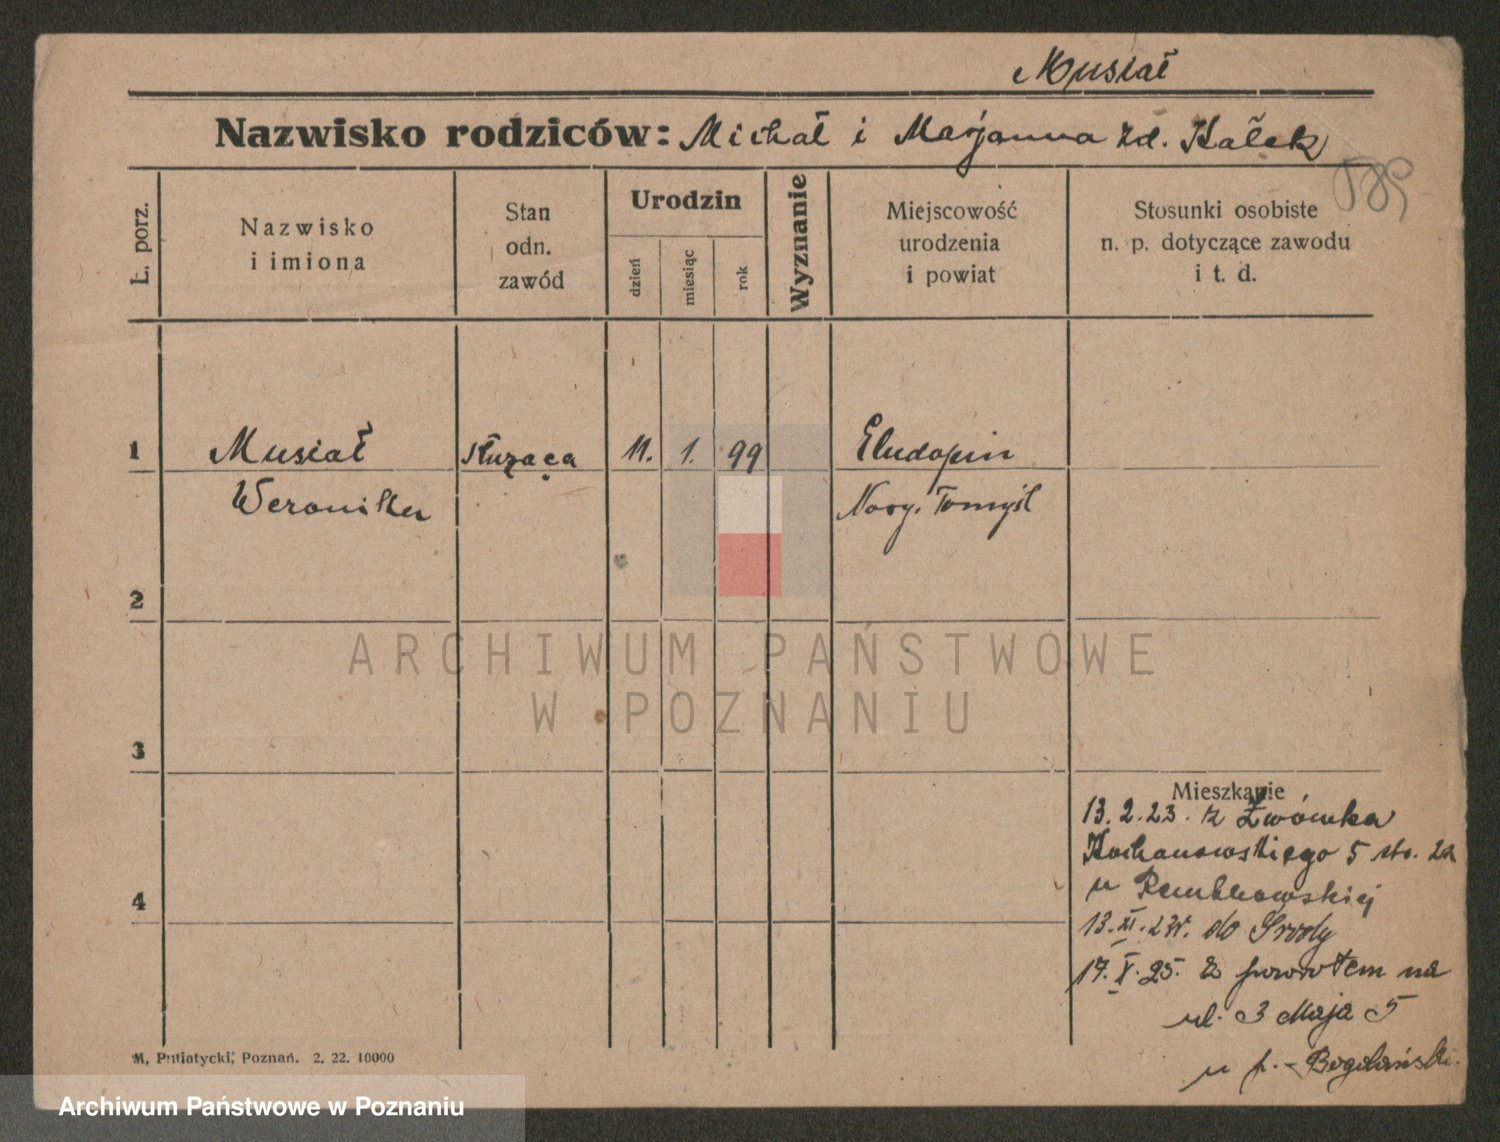 Musiał
Nazwisko rodziców: Michał i Marjanna zd. Kałek
Ł. porz.
Nazwisko
i imiona
Stan
odn.
zawód
Urodzin
dzień
miesiąc
rok
Wyznanie
Miejscowość
urodzenia
i powiat
Stosunki osobiste
n. p. dotyczące zawodu
i t. d.
1
Musiał
służąca
11.
1.
99
Weronika
Nowy. Tomyśl
2
ARCHIWUM PAŃSTWOWE
W POZNANIU
3
Mieszkanie
13.2.23. z Lwówka
Kochanowskiego 5
u
4
13.XI. do Środy
17.X.25. z powrotem na
ul. 3 Maja 5
u p. Bogdański.
M. Putiatycki, Poznań. 2. 22. 10000
Archiwum Państwowe w Poznaniu